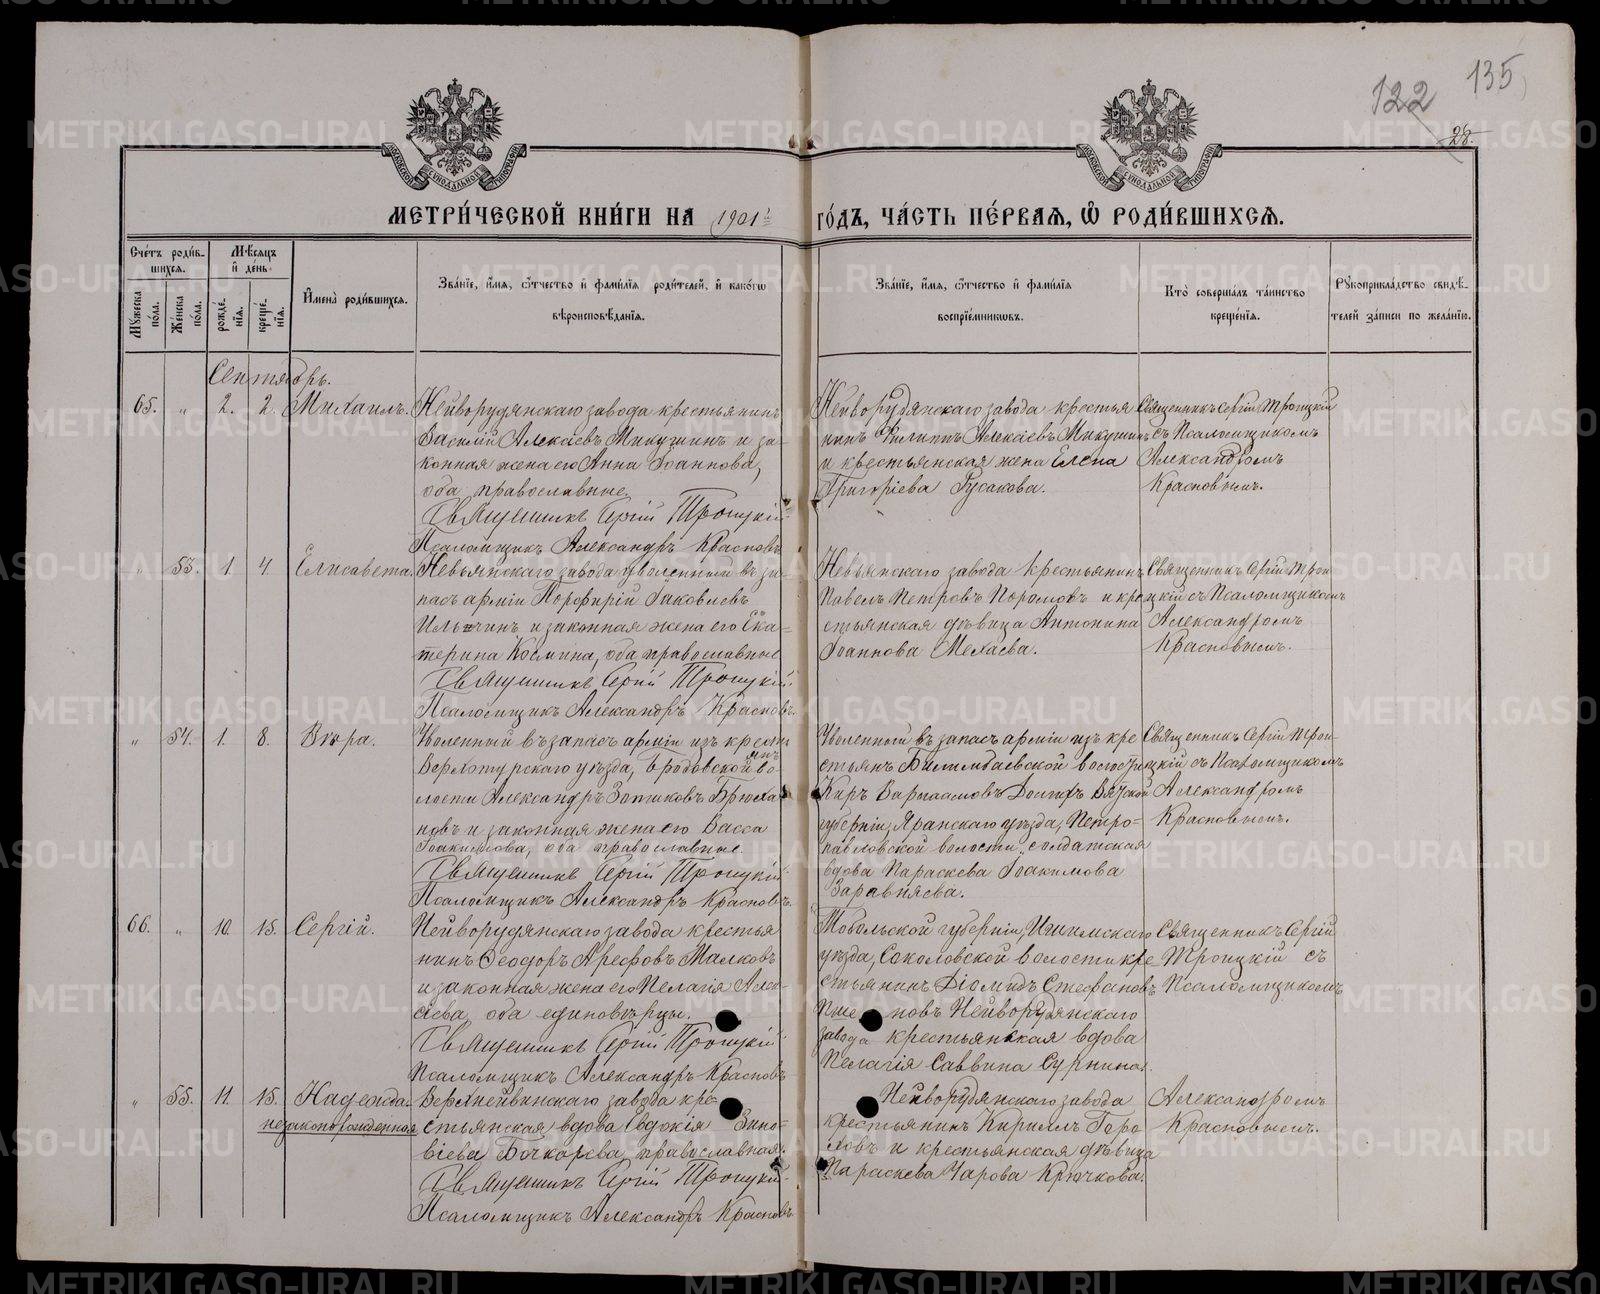 135
122
28.
МОСКОВСКОЙ СУНОДАЛЬНОЙ ТИПОГРАФІИ
МОСКОВСКОЙ СУНОДАЛЬНОЙ ТИПОГРАФІИ
МЕТРИ́ЧЕСКОЙ КНИ́ГИ НА 1901 ГО́ДЪ, ЧА́СТЬ ПЕ́РВАѦ, Ѡ҆ РОДИ́ВШИХСѦ.
Сче́тъ роди́в-
шихсѧ.
Мꙋ́жеска по́ла.
Же́нска по́ла.
Мѣ́сѧцъ
и҆ де́нь.
рожде́-
нїѧ.
креще́-
нїѧ.
И҆мена̀ роди́вшихсѧ.
Зва́нїе, и҆́мѧ, ѻ҆́тчество и҆ фами́лїѧ роди́телей, и҆ како́гѡ
вѣроисповѣ́данїѧ.
Зва́нїе, и҆́мѧ, ѻ҆́тчество и҆ фами́лїѧ
воспрїе́мниковъ.
Кто̀ соверша́лъ та́инство
креще́нїѧ.
Рꙋкоприкла́дство свидѣ́-
телей за́писи по жела́нїю.
Сентябрь.
65. " 2. 2. Михаилъ.
Нейворудянскаго завода крестьянинъ
Василій Алексѣевъ Микушинъ и за-
конная жена его Анна Іоаннова,
оба православные.
Священникъ Сергій Троицкій
Псаломщикъ Александръ Красновъ
Нейворудянскаго завода крестья
нинъ Филиппъ Алексѣевъ Микушинъ
и крестьянская жена Елена
Григоріева Гусакова.
Священникъ Сергій Троицкій
съ Псаломщикомъ
Александромъ
Красновымъ.
" 53. 1. 4. Елисавета.
Невьянскаго завода уволенный въ за-
пасъ арміи Порфирій Іаковлевъ
Ильчинъ и законная жена его Ека-
терина Космина, оба православные
Священникъ Сергій Троицкій
Псаломщикъ Александръ Красновъ.
Невьянскаго завода крестьянинъ
Павелъ Петровъ и кре
стьянская дѣвица Антонина
Іоаннова Мехаева.
Священникъ Сергій Трои
цкій съ Псаломщикомъ
Александромъ
Красновымъ.
" 54. 1. 8. Вѣра.
Уволенный въ запасъ арміи изъ крестьянъ
Верхотурскаго уѣзда, Бродовской во-
лости Александръ Зотиковъ Брюха-
новъ и законная жена его Васса
Іоакимова, оба православные.
Священникъ Сергій Троицкій
Псаломщикъ Александръ Красновъ.
Уволенный въ запасъ арміи изъ кре
стьянъ Билимбаевской волости
Киръ Варлаамовъ Вятской
губерніи, Яранскаго уѣзда, Петро-
павловской волости, солдатская
вдова Параскева Іоакимова
Заравняева.
Священникъ Сергій Трои-
цкій съ Псаломщикомъ
Александромъ
Красновымъ.
66. " 10. 15. Сергій.
Нейворудянскаго завода крестья
нинъ Ѳеодоръ Арефовъ Малковъ
и законная жена его Пелагія Алек-
сіева, оба единовѣрцы.
Священникъ Сергій Троицкій
Псаломщикъ Александръ Красновъ
Тобольской губерніи, Ишимскаго
уѣзда, Соколовской волости кре
стьянинъ Діомидъ Стефановъ
новъ Нейворудянскаго
завода крестьянская вдова
Пелагія Саввина Сурнина.
Священникъ Сергій
Троицкій съ
Псаломщикомъ
" 55. 11. 15. Надежда.
незаконорожденная
Верхнейвинскаго завода кре-
стьянская вдова Евдокія Зино-
віева Бочкарева, православная.
Священникъ Сергій Троицкій
Псаломщикъ Александръ Красновъ
Нейворудянскаго завода
крестьянинъ Кириллъ Горо
ховъ и крестьянская дѣвица
Параскева Чарова Крючкова.
Александромъ
Красновымъ.
METRIKI.GASO-URAL.RU